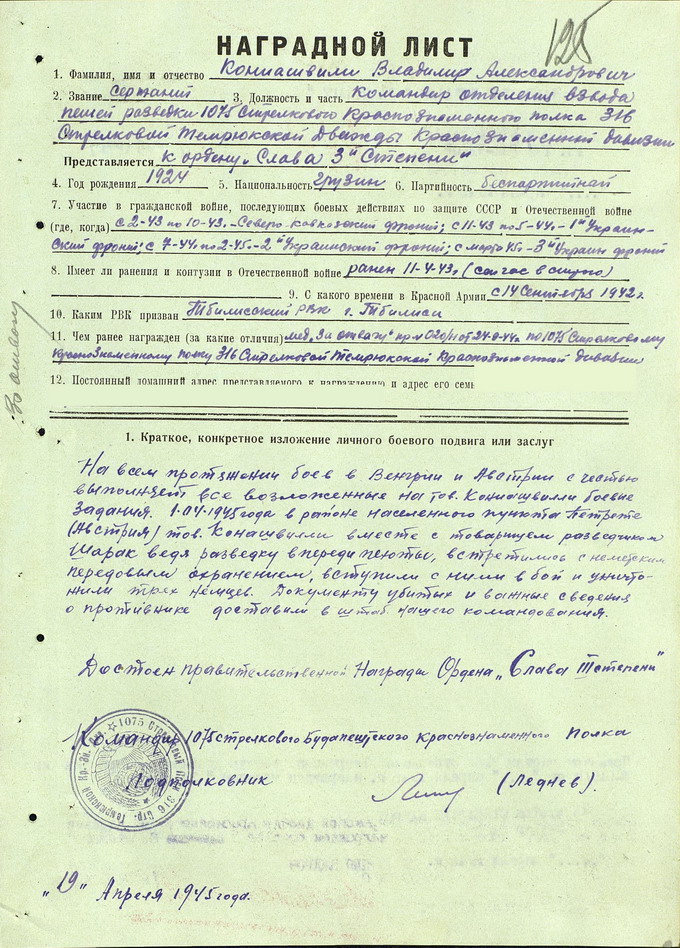 125
НАГРАДНОЙ ЛИСТ
1. Фамилия, имя и отчество Кониашвили Владимир Александрович
2. Звание сержант 3. Должность и часть командир отделения взвода
пешей разведки 1075 Стрелкового Краснознаменного полка 316
Стрелковой Темрюкской Дважды Краснознаменной дивизии
Представляется к ордену „Слава 3й Степени"
4. Год рождения 1924 5. Национальность грузин 6. Партийность беспартийный
7. Участие в гражданской войне, последующих боевых действиях по защите СССР и Отечественной войне
(где, когда) с 2-43 по 10-43.-Северо-кавказский фронт; с 11-43 по 5-44.-1й Украин-
ский фронт; с 7-44. по 2-45.-2й Украинский фронт; с марта 45г-3й Украин фронт
8. Имеет ли ранения и контузии в Отечественной войне ранен 11-4-43г
9. С какого времени в Красной Армии с 14 Сентября 1942г.
10. Каким РВК призван Тбилисский РВК г. Тбилиси
11. Чем ранее награжден (за какие отличия) мед. „За отвагу" пр. от 24-9-44г. по 1075 Стрелковому
Краснознаменному полку 316 Стрелковой Темрюкской Краснознаменной дивизии
12. Постоянный домашний адрес представляемого к награждению и адрес его семь
За отвагу.
1. Краткое, конкретное изложение личного боевого подвига или заслуг
На всем протяжении боев в Венгрии и Австрии с честью
выполняет все возложенные на тов. Кониашвили боевые
Задания. 1-04-1945 года в районе населенного пункта Петрете
(Австрия) тов. Конашвили вместе с товарищем разведчиком
Шарак ведя разведку впереди пехоты, встретились с немецким
передовым охранением, вступили с ними в бой и уничто-
жили трех немцев. Документы убитых и важные сведения
о противнике доставили в штаб нашего командования.
Достоен правительственной Награды Ордена „Слава III степени"
Командир 1075 стрелкового Будапештского Краснознаменного Полка
Подполковник (Леднев).
1075 Стрелковый Полк 316 Стр. Темрюкской
„19" Апреля 1945 года.